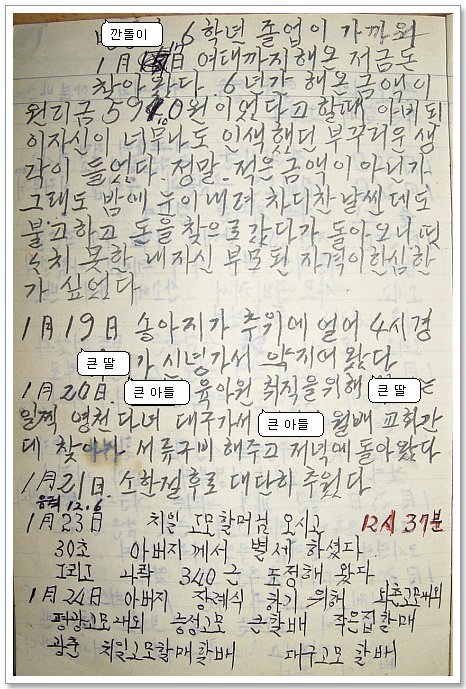 깐돌이 6학년 졸업이 가까와
1월 일 여태까지해온 저금돈
찾아왔다 6년가 해온금액이
원리금 5910원이었다고 할때 아비되
이자신이 너무나도 인색했던 부꾸러운 생
각이 들었다. 정말 적은 금액이 아닌가
그래도 밤에 눈이내려 차디찬 날씬데도
불고하고 돈을 찾으로 갔다가 돌아오니 떳
치 못한 내자신 부모된 자격이한심한
가 싶었다
1月 19日 송아지가 추위에 얼어 4시경
큰 딸 가 신녕가서 약지어왔다
1月 20日 큰 아들 육아원 취직을위해 큰 딸
일찍 영천다녀 대구가서 큰 아들 월배 교회간
데 찾아가 서류구비 해주고 저녁에돌아왔다
1月 21日 소한절후로 대단히 추웠다
음력 12.6
1月 23日 치일고모할머님 오시고 12시 37분
30초 아버지께서 별세하셨다
340근 도정해 왔다
1月 24日 아버지 장례식 하기 위해 화촌고모내외
평광고모내외 송정고모 큰할배 작은집할매
광춘 치일고모할매할배 대구고모할배